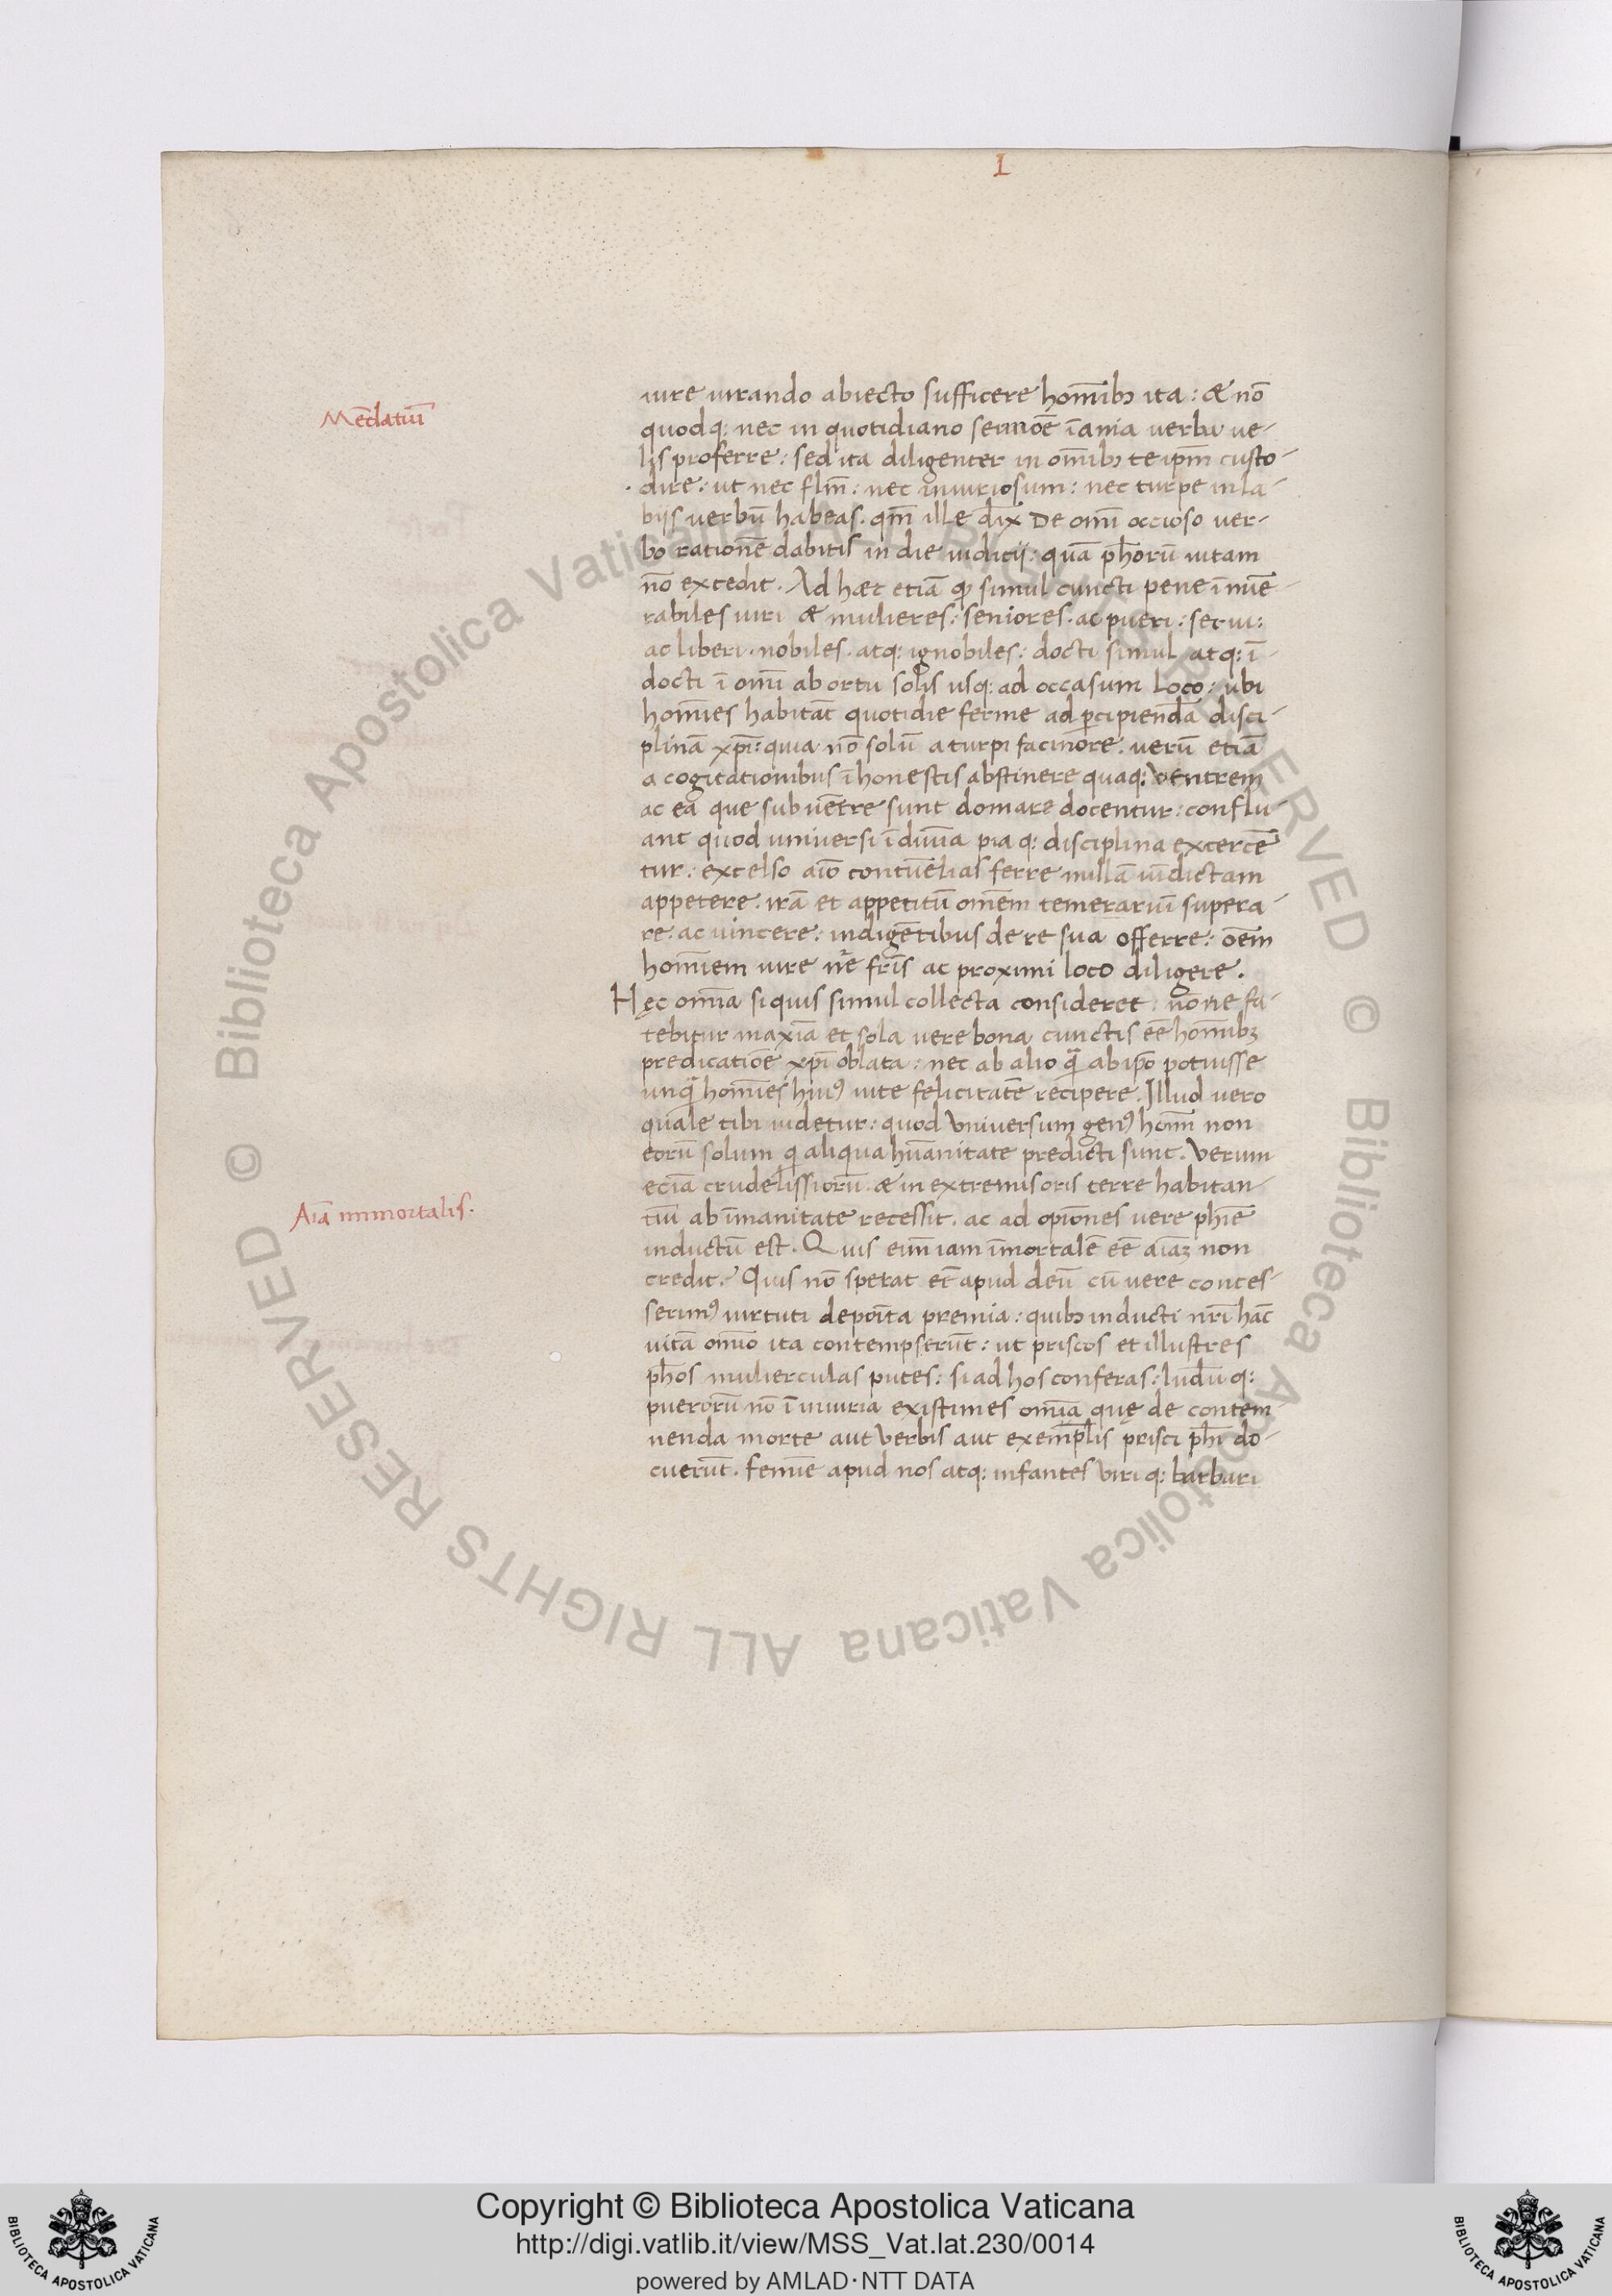 I
Mēdatiū
iure iurando abiecto sufficere homībꝫ ita: & nō
quodq: nec in quotidiano sermōe īania verba ve-
lis proferre: sed ita diligenter in omībꝫ te ipm̄ custo-
dire: ut nec flm̄: nec iniuriosum: nec turpe in la-
biis verbū habeas. qm̄ ille dix̄ De omī occioso ver-
bo rationē dabitis in die iudicij: quā ph̄orū vitam
nō excedit. Ad hæc etiā ꝙ simul cuncti pene īnūe-
rabiles viri & mulieres: seniores. ac pueri: servi:
ac liberi. nobiles. atq: ignobiles: docti simul atq: ī-
docti ī omī ab ortu solis usq: ad occasum loco: ubi
homīes habitāt quotidie ferme ad ꝑcipiendā disci-
plinā xpī: quia nō solū a turpi facinore. verū etiā
a cogitationibus īhonestis abstinere quaq: Ventrem
ac ea que sub vētre sunt domare docentur: conflu-
ant quod universi ī divīa pia q: disciplina excercē
tur: excelso aīo contūelias ferre nullā vīdictam
appetere. irā et appetitū omēm temerariū supera-
re. ac vincere: indigētibus de re sua offerre: oēm
homīem iure nr̄e fr̄is ac proximi loco diligere.
Hęc omīa si quis simul collecta consideret: nōne fa-
tebitur maxīa et sola vere bona cunctis eē homībꝫ
predicatiōe xpī oblata: nec ab alio q̄ ab ipō potuisse
unq̄ homīes huiꝰ vite felicitatē recipere. Illud vero
quale tibi videtur: quod Universum genꝰ homī non
eorū solum qi aliqua hūanitate predicti sunt. Verum
eciā crudelissiorū. & in extremis oris terre habitan-
tiū ab īmanitate recessit. ac ad opiōnes vere phīe
inductū est. Quis eīm iam īmortalē eē aīaꝫ non
credit? Quis nō sperat et̄ apud deū cū vere conces-
serimꝰ virtuti depoīta premia: quibꝫ inducti nr̄i hāc
vitā omīo ita contempserūt: ut priscos et illustres
ph̄os mulierculas putes: si ad hos conferas: ludū q:
puerorū nō ī iniuria existimes omīa quę de contem
nenda morte aut Verbis aut exemplis prisci ph̄i do-
cuerūt. femīe apud nos atq: infantes Viri q: barbari
Aīa immortalis.
Copyright © Biblioteca Apostolica Vaticana
http://digi.vatlib.it/view/MSS_Vat.lat.230/0014
powered by AMLAD·NTT DATA
BIBLIOTECA APOSTOLICA VATICANA
BIBLIOTECA APOSTOLICA VATICANA
© Biblioteca Apostolica Vaticana ALL RIGHTS RESERVED © Biblioteca Apostolica Vaticana ALL RIGHTS RESERVED